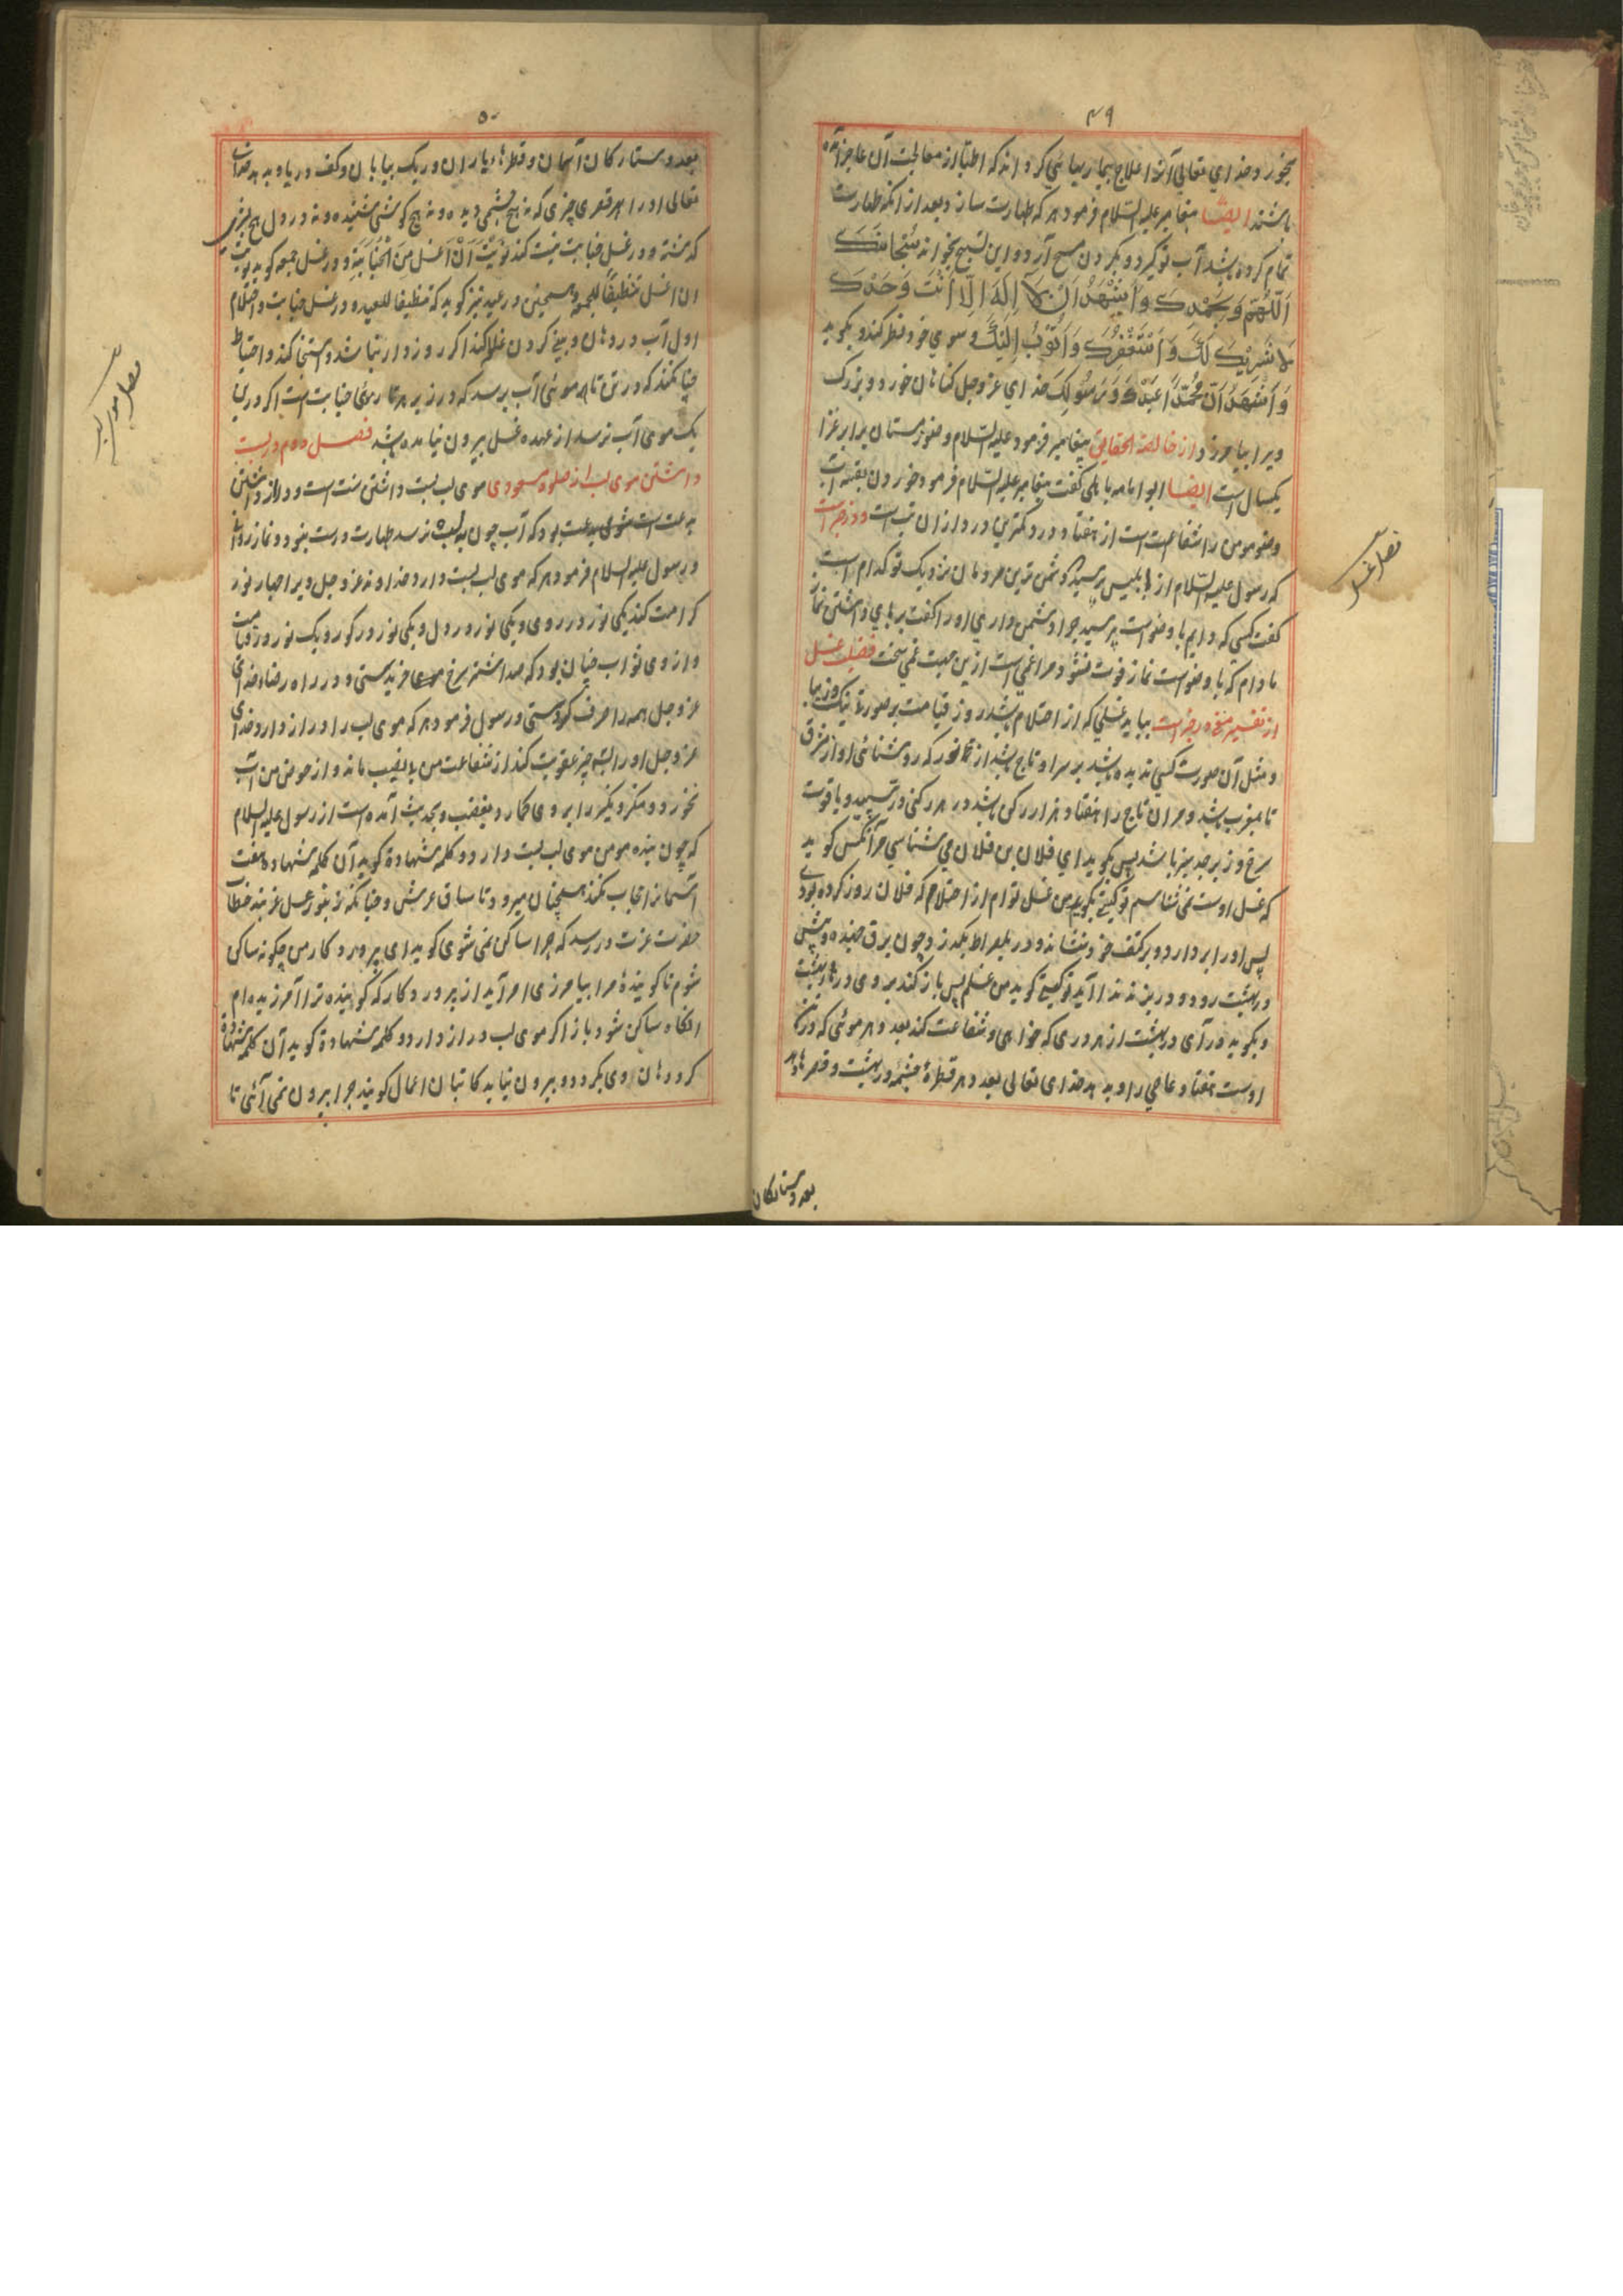 ۴۹
بخورد خداي تعالي آنرا علاج بیمار بیهائي کرداند که اطبا از معالجت آن عاجز آمده
باشند ایضا پیغامبر علیه السلام فرمود هر که طهارت سازد بعد از انکه طهارت
تمام کرده باشد آب نو گیرد و بگردن مسح آرد و این تسبیح بخواند سُبْحَانَكَ
اَللّٰهُمَّ وَبِحَمْدِكَ وَاَشْهَدُ اَنْ لَا اِلٰهَ اِلَّا اَنْتَ وَحْدَكَ
لَا شَرِيْكَ لَكَ وَاَسْتَغْفِرُكَ وَاَتُوْبُ اِلَيْكَ و سوي خود نظر کند و بگوید
وَاَشْهَدُ اَنَّ مُحَمَّدًا عَبْدُكَ وَرَسُوْلُكَ خداي عز وجل کناهان خورد و بزرک
ویرا بیامرزد از خالصة الحقایق پیغامبر فرمود علیه السلام وضوء زمستان برابر غزا
یکسال است ایضا ابو امامه باهلی کفت پیغامبر علیه السلام فرمود خوردن بقیه آب
وضو مومن را شفاعت است از هفتاد درد کمترین درد ازان تب است و در خبر است
که رسول علیه السلام از ابلیس پرسید دشمن ترین مردمان نزدیک تو کدام است
کفت کسی که دایم با وضو است پرسید چرا دشمن داري اورا کفت برباي داشتن نماز
مادام که با وضو است نماز فوت نشود مرا غمی است ازین جهت غمي سخت فضیلت غسل
از تفسیر در خبر است بیاید غسلی که از احتلام باشد روز قیامت بر صورتی نیک و زیبا
و مثل آن صورت کسي ندیده باشد بر سر او تاج باشد از نور که روشنائی او از مشرق
تا مغرب باشد و مران تاج را هفتاد هزار رکن باشد در هر رکنی در سپید و یاقوت
سرخ و زبرجد سبز باشد پس بکوید اي فلان بن فلان مي شناسي مرا آنکس کوید
که غسل اوست نمی شناسم تو کیستي بکوید من غسل توام از احتلام که فلان روز کرده بودي
پس اورا بردارد و بر کتف خود نشاند و در پلصراط بکذرد چون برق جهنده و پیش
در بهشت رود و در بزند ندا آید تو کیستي کوید من غسلم پس باز کند بر وی درهاي بهشت
و بکوید در آی در بهشت از هر دری که خواهی و شفاعت کند بعدد هر موئی که در تن
اوست هفتاد عاصي را و بدهد خداى تعالى بعدد هر قطرهٔ چشمه در بهشت و قصرها و
بعدد ستارکان
فصل غسل
۵۰
بعدد ستارکان آسمان و قطرهاء باران و ریک بیابان و کف دریا و بدهد خداى
تعالى اورا در هر قصرى چیزى که نه هیچ چشمی دیده و نه هیچ کوشی شنیده و نه در دل هیچ بشرى
کذشته و در غسل جنابت نیت کند نَوَيْتُ اَنْ اَغْسِلَ مِنَ الْجَنَابَةِ و در غسل جمعه کوید نویت
ان اغسل تنظیفًا للجمعة و همچنین در عید نیز کوید که تنظیفا للعید و در غسل جنابت و احتلام
اول آب در دهان و بینی کردن غلو کند اکر روزه دار نباشد و استنجا کند و احتیاط
چنان کند که در تن تا هر موئی آب برسد که در زیر هر تار موئی جنابت است اکر در تن
یک موى آب نرسد از عهده غسل بیرون نیامده باشد فصل دوم در پست
داشتن موى لب از صلوة مسعودى موى لب پست داشتن سنت است و دراز داشتن
بدعت است شومى بدعت بود که آب چون بلب نرسد طهارت درست نبود و نماز روا نه
و رسول علیه السلام فرمود هر که موى لب پست دارد خداوند عز وجل ویرا چهار نور
کرامت کند یکی نور در روى و یکی نور در دل و یکی نور در کور و یک نور روز قیامت
و از وى ثواب چنان بود که صد اشتر سرخ موى خریدستی و در راه رضاء خداى
عز وجل همه را صرف کردستی و رسول فرمود هر که موى لب را دراز دارد خداى
عز وجل اورا چیز عقوبت کند از شفاعت من بی نصیب ماند و از حوض من آب
نخورد و منکر و نکیر را بر وى کمارد بغضب و بحدیث آمده است از رسول علیه السلام
که چون بنده مومن موى لب پست دارد و کلمه شهادة کوید آن کلمه شهادة هفت
آسمانرا حجاب نکند همچنان میرود تا ساق عرش و چنانکه زنبور عسل غرنبد خطاب
حضرت عزت در رسد که چرا ساکن نمی شوى کوید اى پروردکار من چکونه ساکن
شوم تا کویندهٔ مرا بیامرزى امر آید از پروردکار که کوینده ترا آمرزیده ام
انکاه ساکن شود باز اکر موى لب دراز دارد و کلمه شهادة کوید آن کلمه شهادة
کرد دهان وى بکردد و بیرون نیاید کاتبان اعمال کویند چرا بیرون نمی آئی تا
فصل موى لب